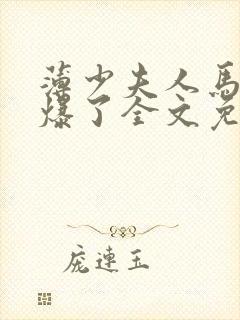 薄少夫人馬
爆了全文免
庞連玉